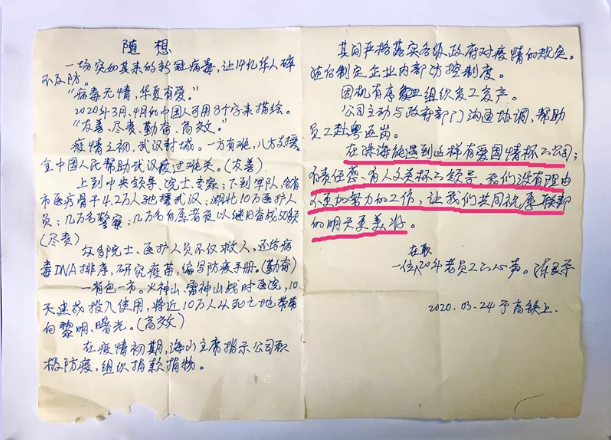 随想
一场突如其来的新冠病毒,让14亿华人猝
不及防。
"病毒无情,华夏有爱。"
2020年3月、4月的中国人可用8个字来描绘。
"友善、尽责、勤奋、高效。"
疫情之初,武汉封城。一方有难,八方支援
全中国人民帮助武汉渡过难关。(友善)
上到中央领导、院士、专家;下到军队、各省
市医疗骨干4.2万人驰援武汉;湖北10万医护人
员;几万名警察;几万名志愿者夜以继日奋战
(尽责)
众多院士、医护人员不仅救人,还给病
毒DNA排序,研究疫苗,编写防疫手册。(勤奋)
一省包一市。火神山、雷神山战时医院,10
天建成投入使用,将近10万人从死亡地带带
向黎明、曙光。(高效)
在疫情初期,海山主席指示公司积
极防疫,组织捐款捐物。
其间严格落实各级政府对疫情的规定。
适合制定企业内部防控制度。
因机有序 组织复工复产。
公司主动与政府部门沟通协调,帮助
员工赴粤返岗。
在深海能遇到这样有爱国情怀的公司;
有责任感、有人文关怀的领导。我们没有理由
不更加努力的工作,让我们共同祝愿
的明天更美好。
在职
一位20年老员工的心声。
2020.03.24于高铁上.